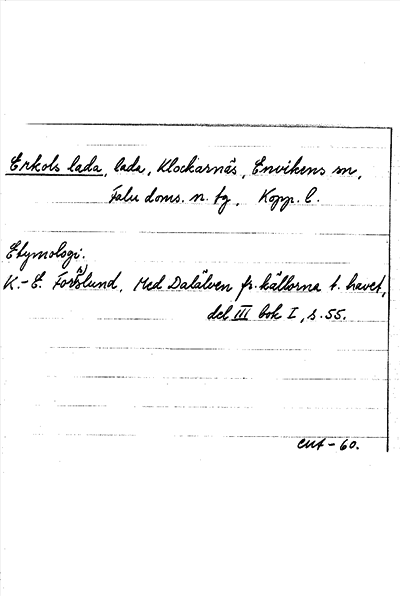 Erkols lada, lada, Klockarnäs, Envikens sn,
Falu doms. n. tg, Kopp. l.
Etymologi:
K.-E. Forslund, Med Dalälven fr. källorna t. havet,
del III bok I, s. 55.